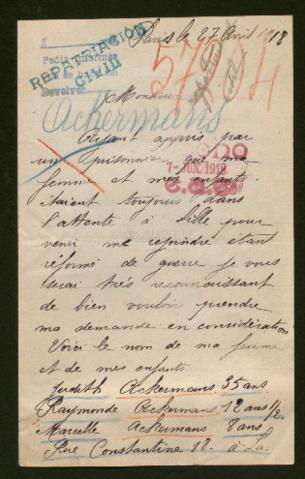 Paris le 27 Avril 1918
Pedir informes
REPATRIACIÓN
CIVIL
Devolver
Monsieur
Ackermans
Ayant appris par
un prisonnier que ma
femme et mes enfants
étaient toujours dans
l'attente à Lille pour
venir me rejoindre étant
réformé de guerre je vous
serai très reconnaissant
de bien vouloir prendre
ma demande en considération
Voici le nom de ma femme
et de mes enfants
Judith Ackermans 35 ans
Raymonde Ackermans 12 ans 1/2
Marcelle Ackermans 8 ans
Rue Constantine 18. à La